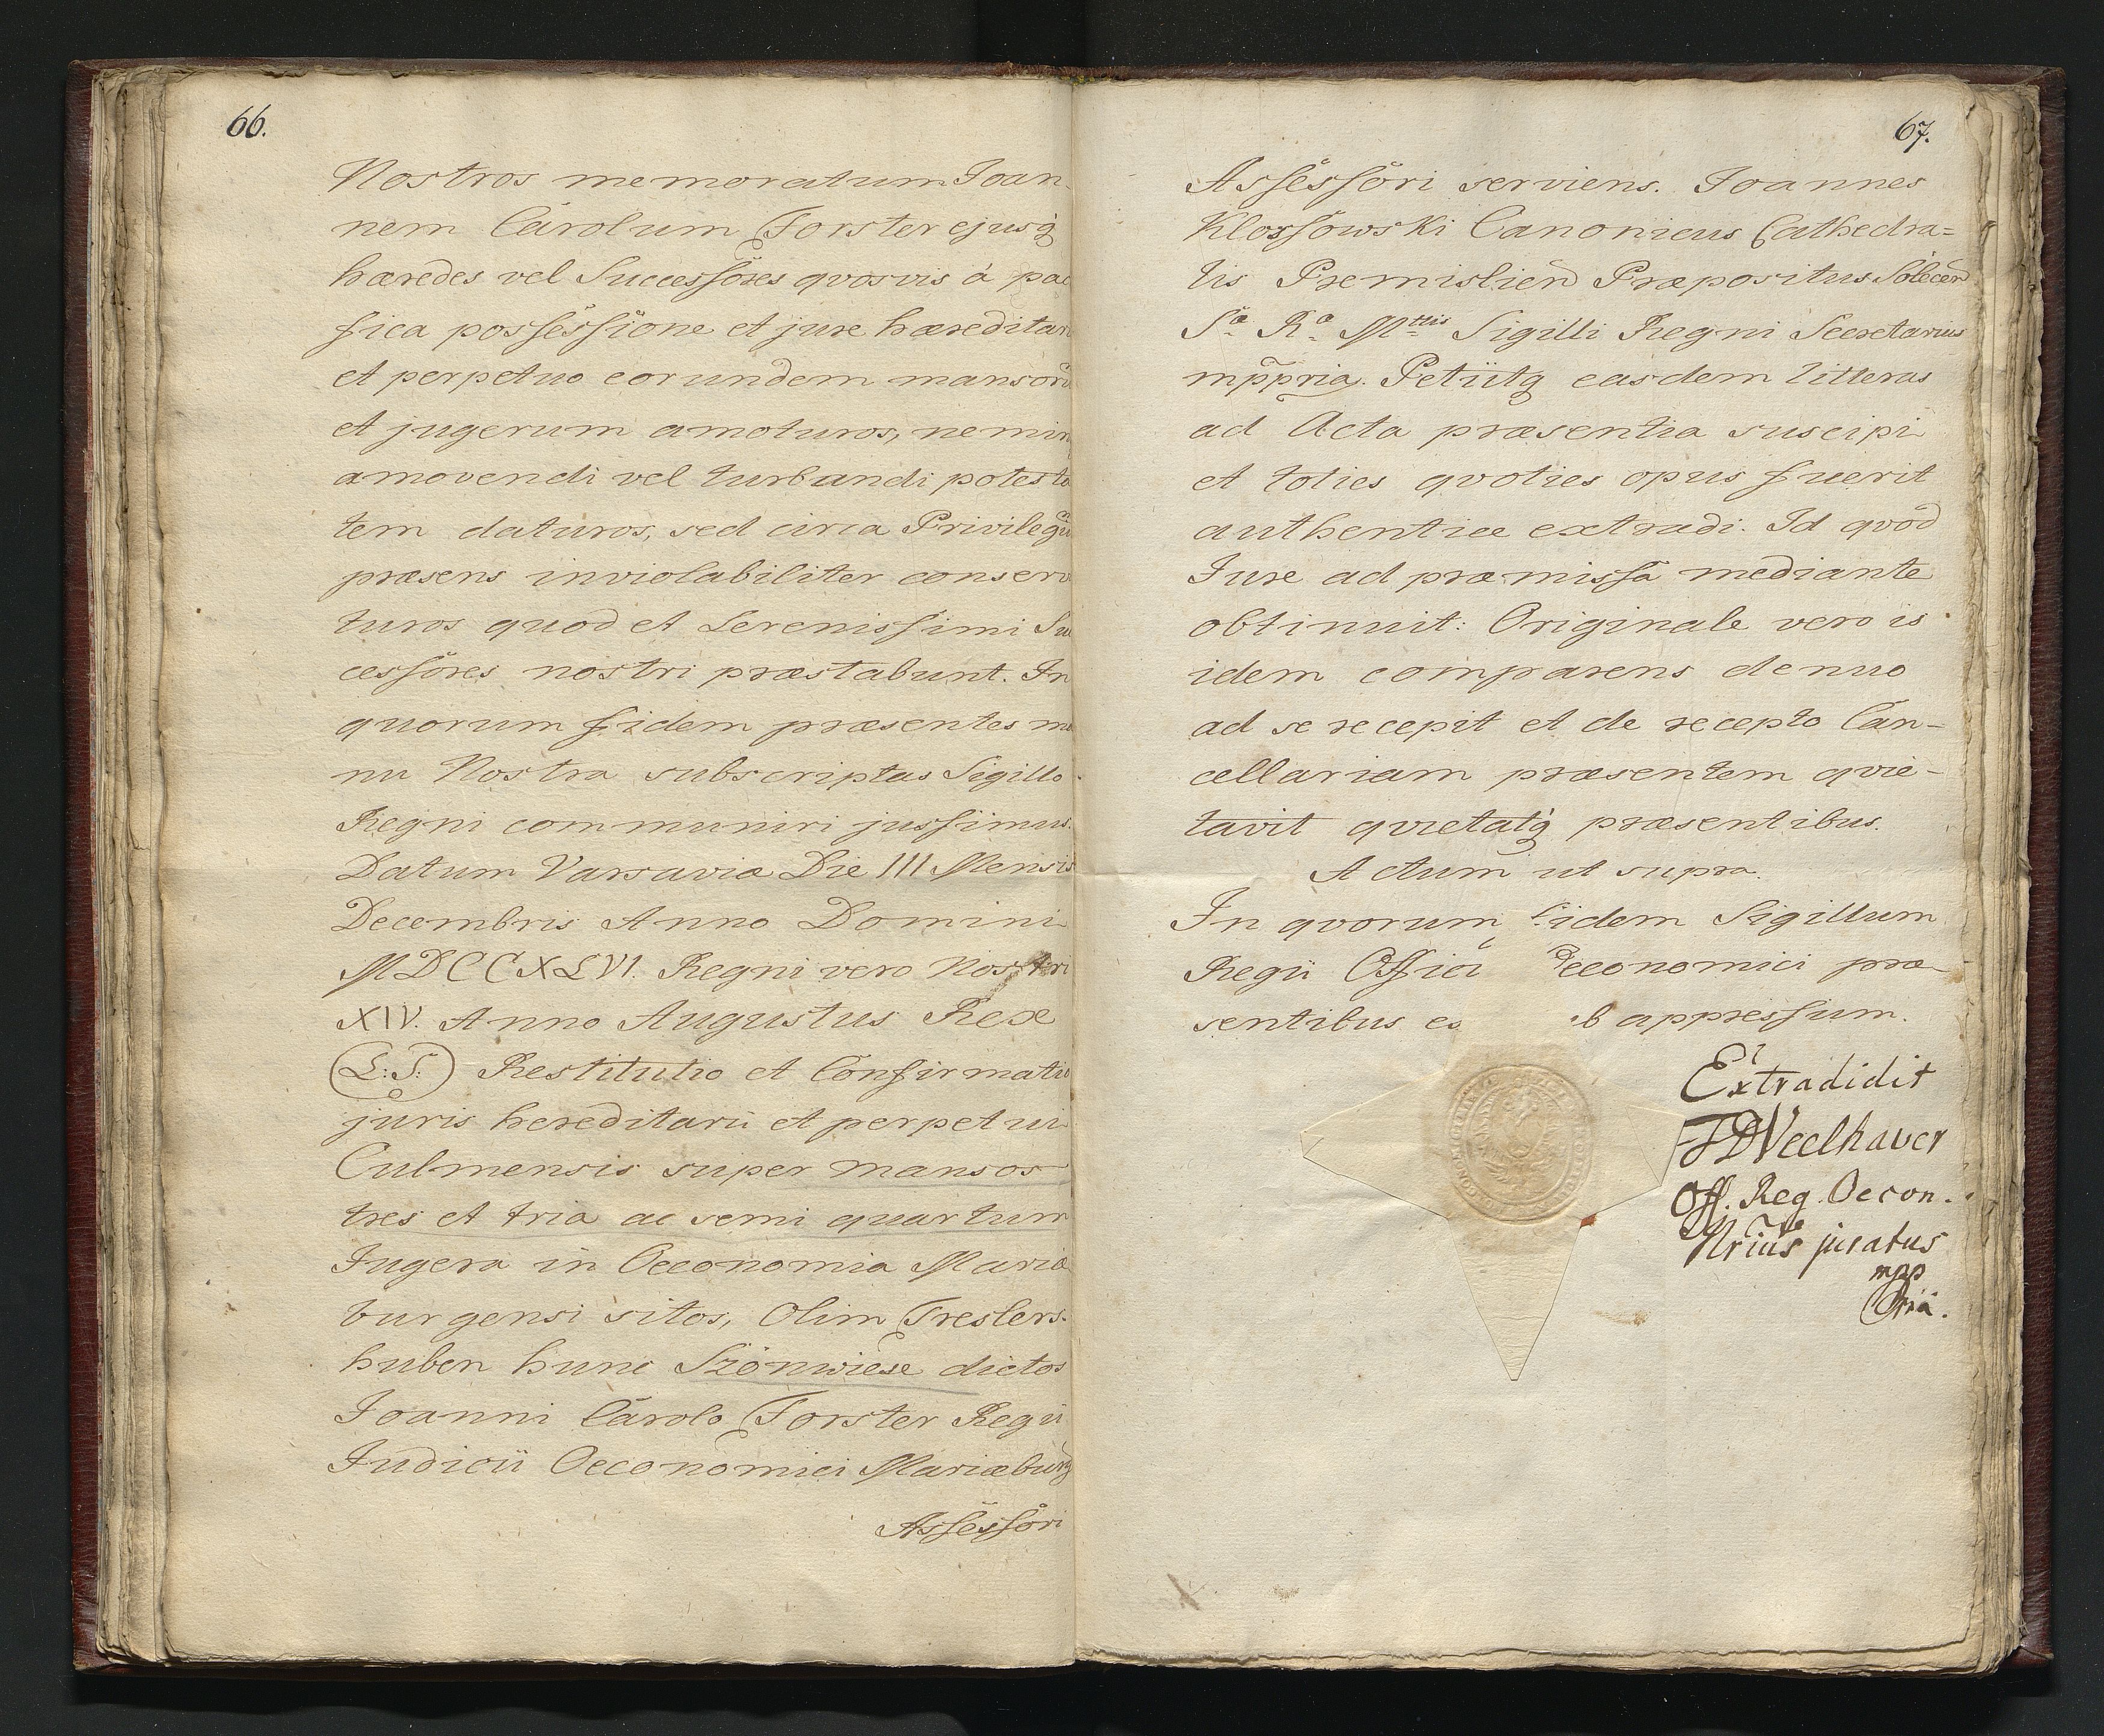 66.
Nostros memoratum Joan
nem Carolum Forster ejusq́
hæredes vel Successores qvosvis á pac
fica possessione et jure hæreditar
et perpetuo eorundem mansorũ
et jugerum amoturos, nemin
amovendi vel turbandi potesta
tem daturos, sed circa Privilegiũ
præsens inviolabiliter conserva
turos quod et Serenissimi Su
cessores nostri præstabunt. In
quorum fidem præsentes ma
nu Nostra subscriptas Sigillo
Regni communiri jussimus.
Datum Varsaviæ Die III Mensis
Decembris Anno Domini
MDCCXLVI. Regni vero Nostri
XIV. Anno Augustus Rex
(L:S:) Restitutio et Confirmatio
juris hereditarii et perpetui
Culmensis super mansos
tres et tria ac semi quartum
Jugera in Oeconomia Mariæ
burgensi sitos, Olim Treslers-
huben hunc Szönwiese dictos
Joanni Carolo Forster Regii
Judicii Oeconomici Mariæburg
Assessori
67.
Assessori serviens. Joannes
Klossowski Canonicus Cathedra=
lis Premislien̄ Præpositus Solecen̄
Sæ Ræ Mttis Sigilli Regni Secretarius
mp̄pria. Petiitq eas dem litteras
ad Acta præsentia suscipi
et toties qvoties opus fuerit
authentice extradi. Id qvod
Jure ad præmissa mediante
obtinuit: Originale vero is
idem comparens denuo
ad se recepit et de recepto Can-
cellariam præsentem qvie-
tavit qvietatq́ præsentibus.
Actum ut supra.
In qvorum fidem Sigillum
Regii Offici Oeconomici præ-
sentibus es b appressum.
Extradidit
JDWeelhaver
Off. Reg. Oecon.
Nrius juratus
mpp
ria.